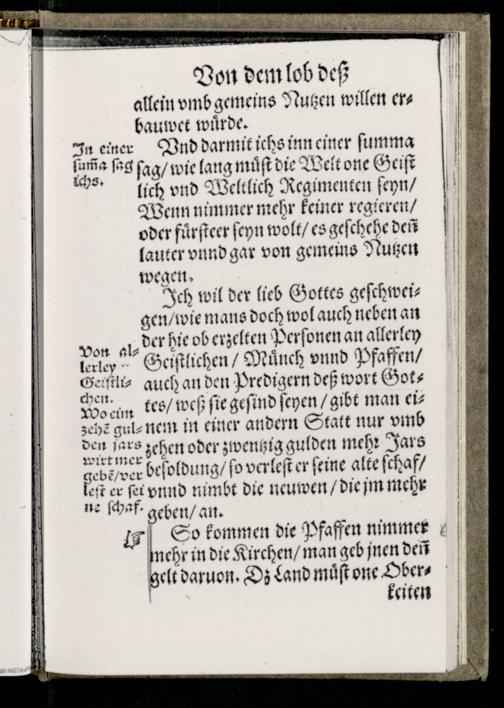 Von dem lob deß
allein vmb gemeins Nutzen willen er⸗
bauwet würde.
In einer
sum̃a sag
ichs.
Vnd darmit ichs inn einer summa
sag/ wie lang müst die Welt one Geist
lich vnd Weltlich Regimenten seyn/
Wenn nimmer mehr keiner regieren/
oder fürsteer seyn wolt/ es geschehe den̄
lauter vnnd gar von gemeins Nutzen
wegen.
Ich wil der lieb Gottes geschwei⸗
gen/ wie mans doch wol auch neben an
der hie ob erzelten Personen an allerley
Geistlichen/ Münch vnnd Pfaffen/
auch an den Predigern deß wort Got⸗
tes/ weß sie gesind seyen/ gibt man ei⸗
nem in einer andern Statt nur vmb
zehen oder zwentzig gulden mehr Jars
besoldung/ so verlest er seine alte schaf/
vnnd nimbt die neuwen/ die jm mehr
geben/ an.
Von al⸗
lerley
Geistli⸗
chen.
Wo eim
zehē gul⸗
den jars
wirt mer
gebē/ ver
lest er sei
ne schaf.
☞
So kommen die Pfaffen nimmer
mehr in die Kirchen/ man geb jnen den̄
gelt daruon. Dz Land müst one Ober⸗
keiten